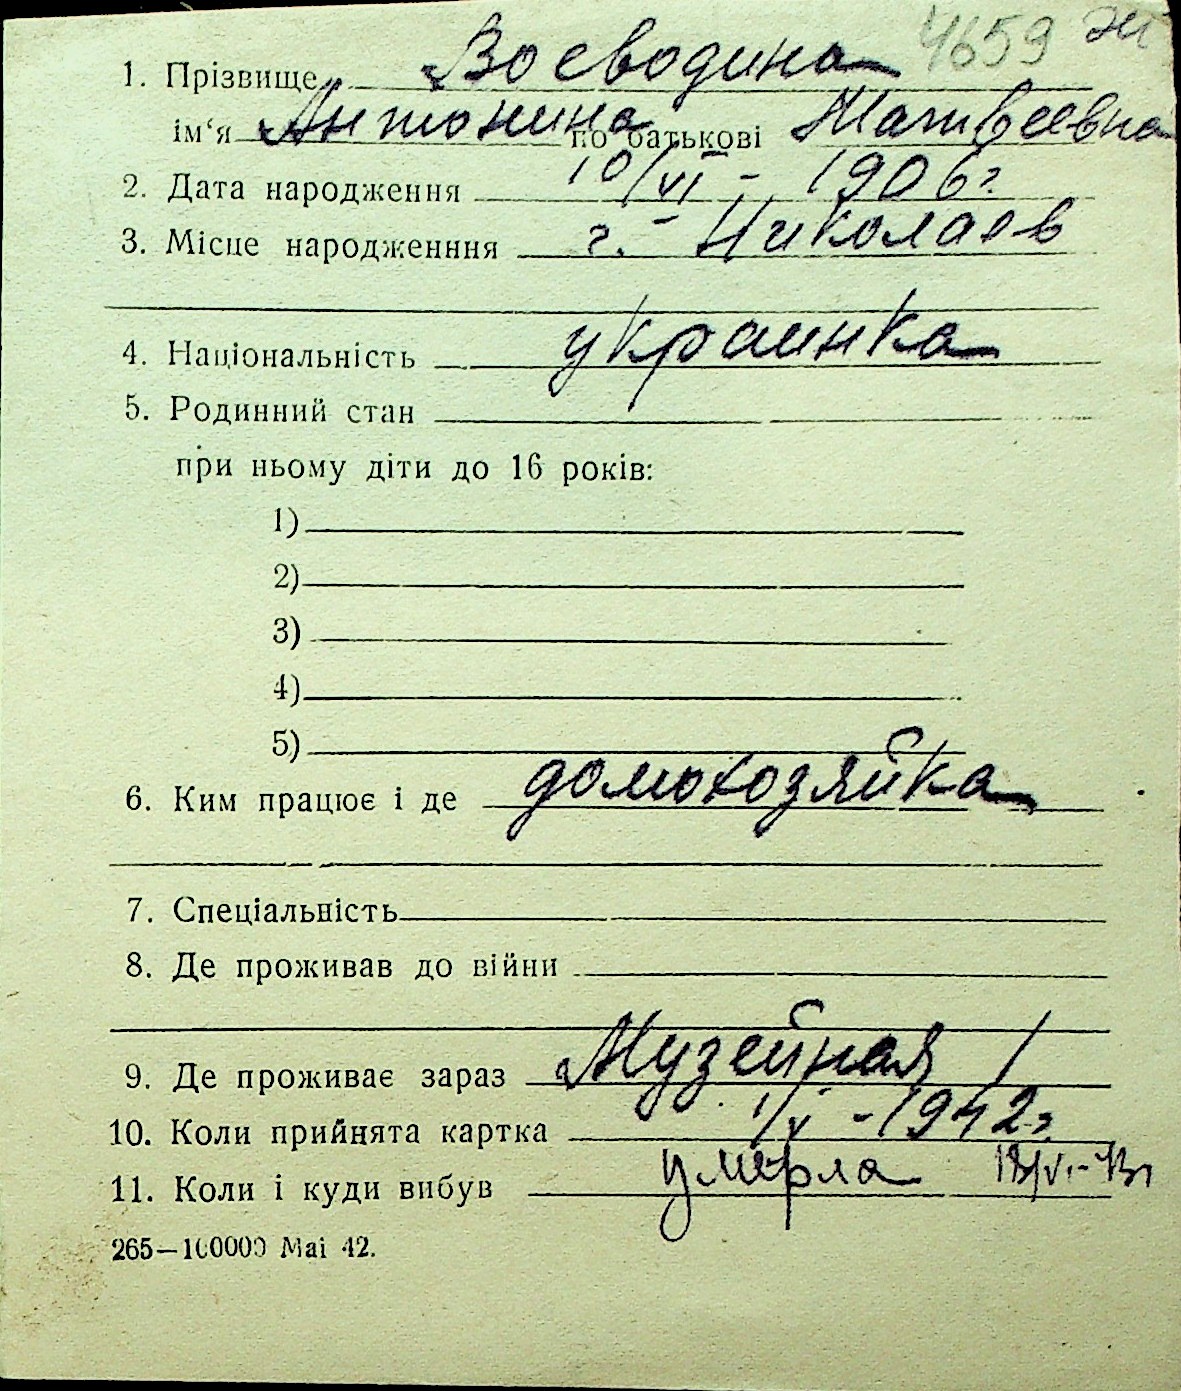 4659 эи
1. Прізвище Воеводина
ім‘я Антонина по батькові Матвеевна
2. Дата народження 10/VI - 1906 г.
3. Місце народженння г. Николаев
4. Національність украинка
5. Родинний стан
при ньому діти до 16 років:
1)
2)
3)
4)
5)
6. Ким працює і де домохозяйка
7. Спеціальність
8. Де проживав до війни
9. Де проживає зараз Музейная 1
10. Коли прийнята картка 1/V - 1942 г.
11. Коли і куди вибув умерла 18/VI-43г
265—100000 Mai 42.